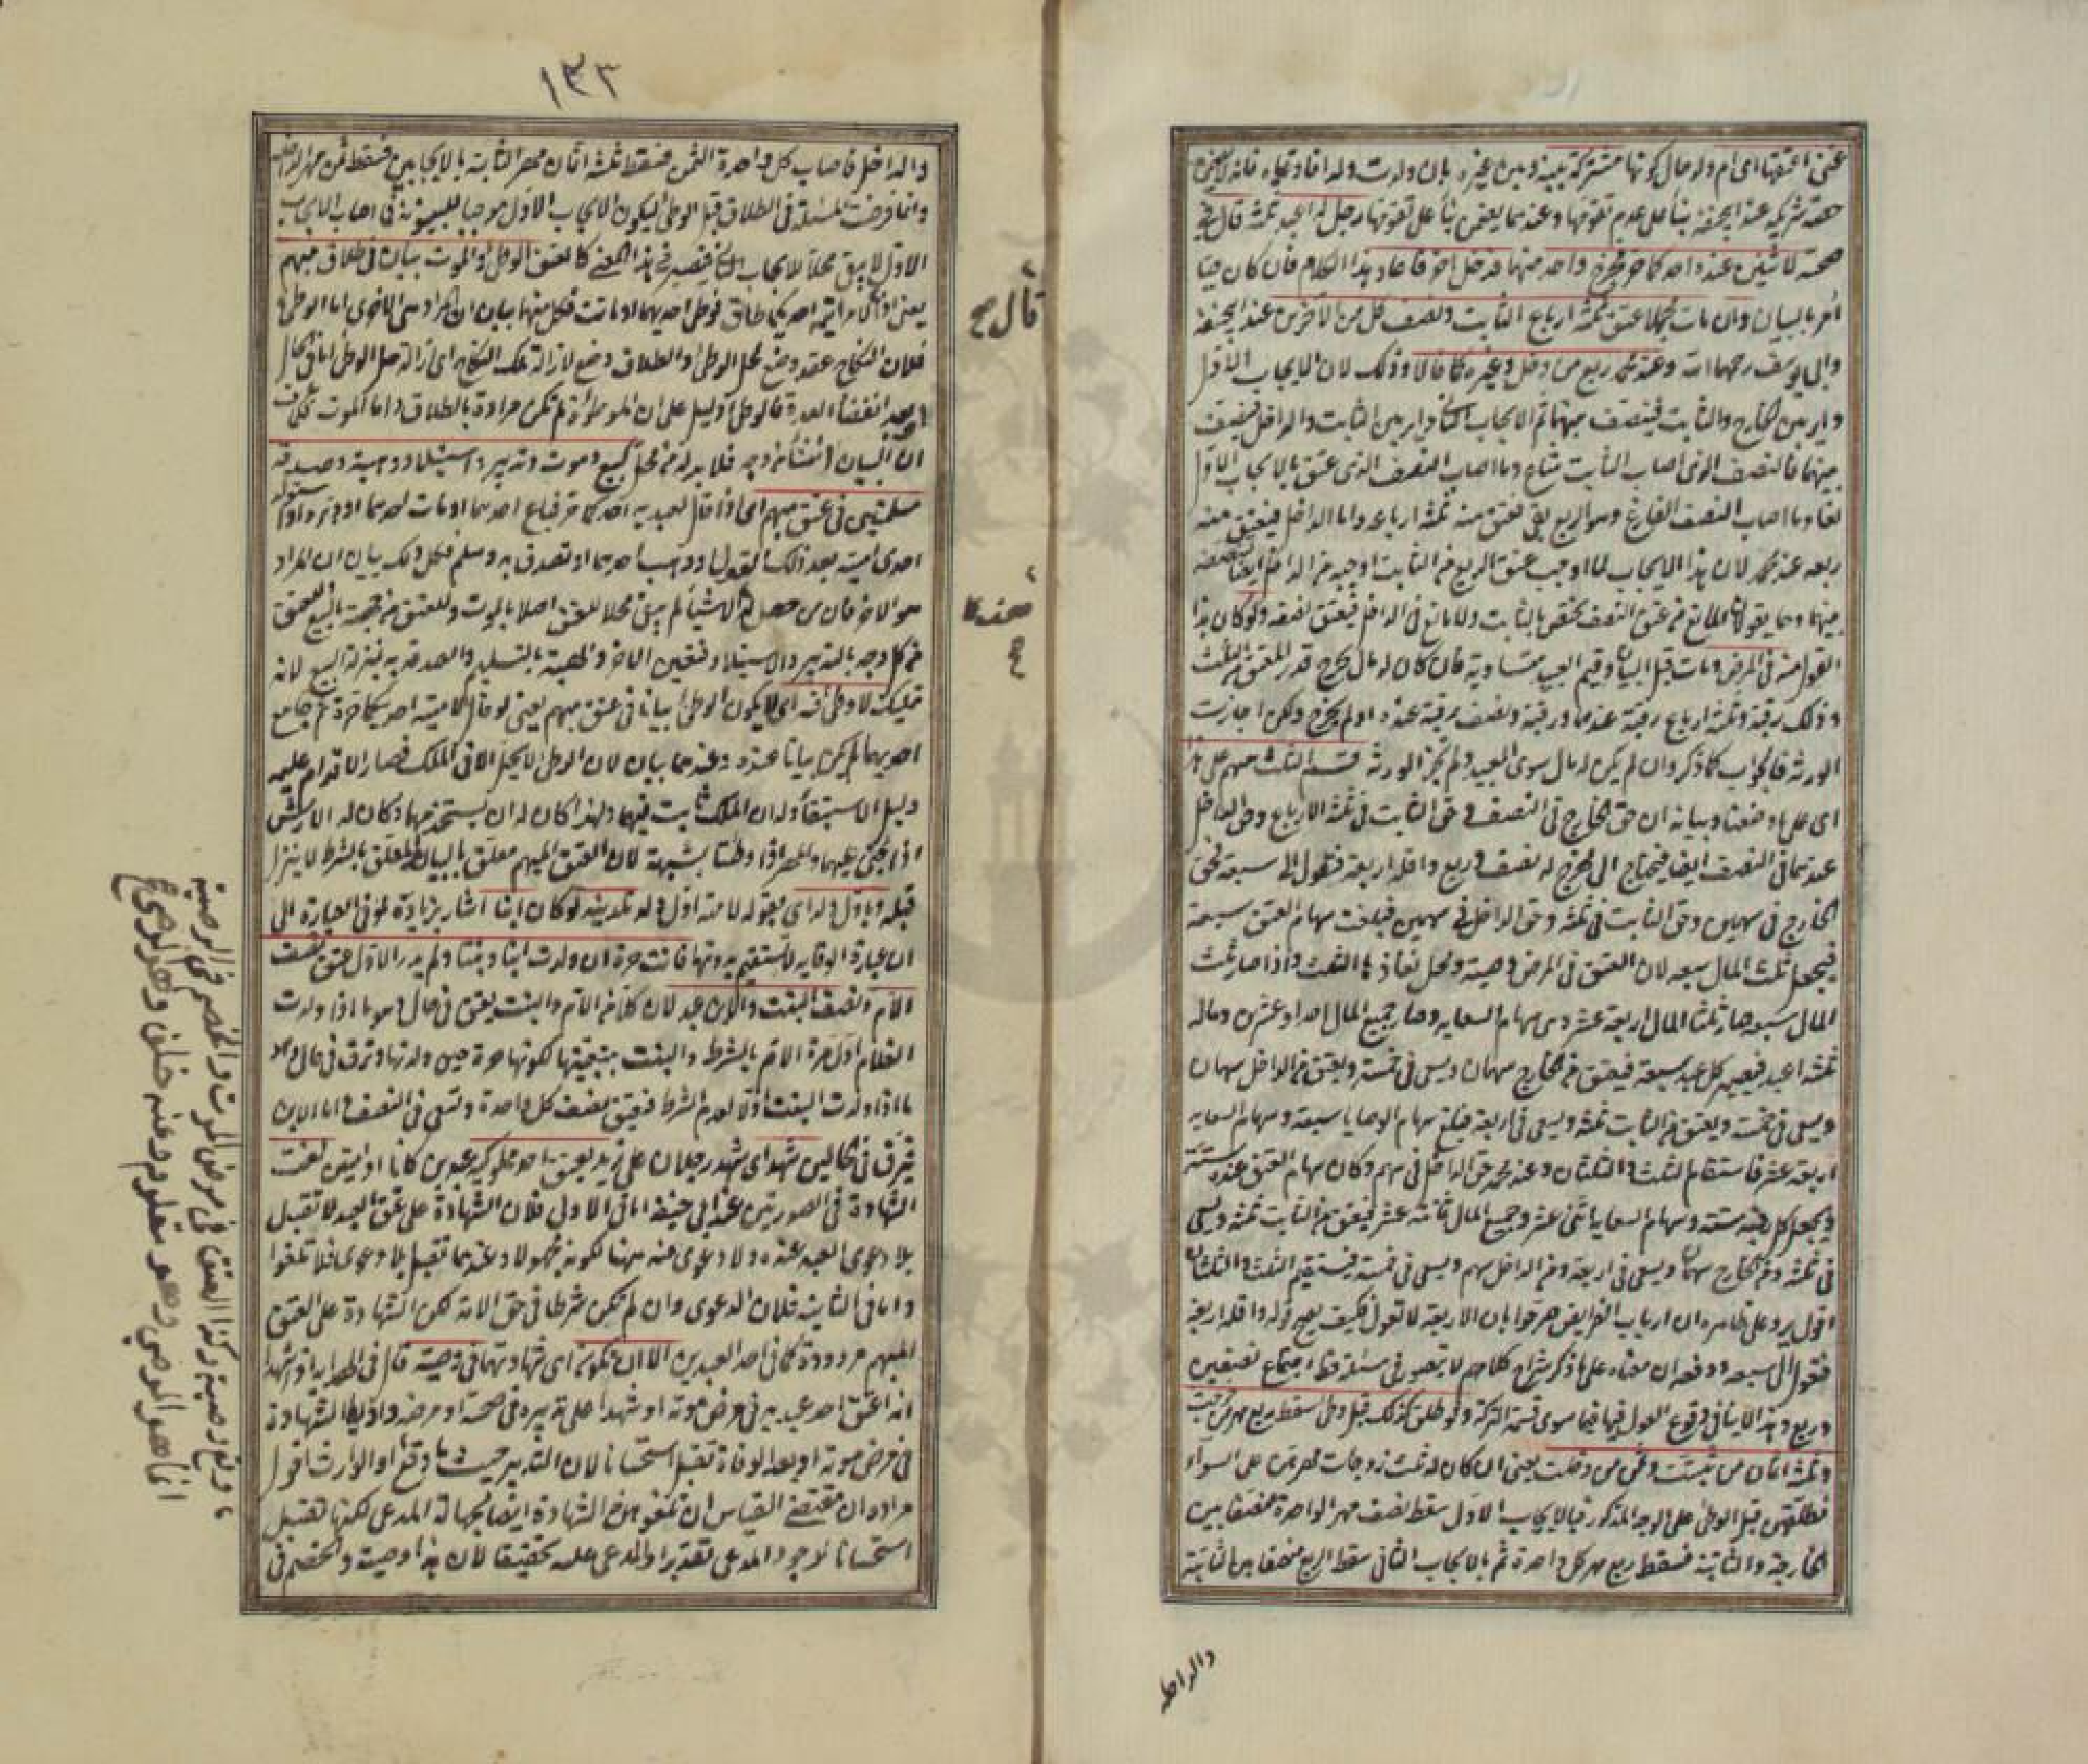 حصة شريكه عند ابي حنيفة بناء على عدم تقومها وعندهما يضمن بناء على تقومها رجل له اعبد ثلثة قال في
صحته لاثنين عنده احدكما حر فخرج واحد منهما فدخل آخر فاعاد هذا الكلام فان كان حيا
امر بالبيان وان مات مجهلا عتق ثلثة ارباع الثابت ونصف كل من الآخرين عند ابي حنيفة
وابي يوسف رحمهما الله وعند محمد ربع من دخل وغيره كما قالا وذلك لان الايجاب الاول
داير بين الخارج والثابت فينصف بينهما ثم الايجاب الثاني داير بين الثابت والداخل فينصف
بينهما فالنصف الذي اصاب الثابت شاع وما اصاب النصف الذي عتق بالايجاب الاول
لغا وما اصاب النصف الفارغ وهو الربع بقي فعتق منه ثلثة ارباعه واما الداخل فيعتق منه
ربعه عند محمد لان هذا الايجاب لما اوجب عتق الربع من الثابت اوجبه من الداخل ايضا
بينهما وهما يقولان المانع من عتق النصف يختص بالثابت ولا مانع في الداخل فيعتق نصفه ولو كان هذا
القول منه في المرض ومات قبل البيان وقيم العبيد متساوية فان كان له مال يخرج قدر المعتق من الثلث
وذلك رقبة وثلثة ارباع رقبة عندهما ورقبة ونصف رقبة عنده او لم يخرج ولكن اجازت
الورثة فالجواب كما ذكر وان لم يكن له مال سوى العبيد ولم تجز الورثة قسم الثلث بينهم على هذا
اي على ما وصفنا وبيانه ان حق الخارج في النصف وحق الثابت في ثلثة الارباع وحق الداخل
عندهما في النصف ايضا فيحتاج الى مخرج له نصف وربع واقله اربعة فتعول الى سبعة فحق
الخارج في سهمين وحق الثابت في ثلثة وحق الداخل في سهمين فبلغت سهام العتق سبعة
فيجعل ثلث المال سبعة لان العتق في المرض وصية ومحل نفاذها الثلث واذا صار ثلث
المال سبعة صار ثلثا المال اربعة عشر وهي سهام السعاية وصار جميع المال احدا وعشرين وماله
ثلثة اعبد فيصير كل عبد سبعة فيعتق من الخارج سهمان ويسعى في خمسة ويعتق من الداخل سهمان
ويسعى في خمسة ويعتق من الثابت ثلثة ويسعى في اربعة فبلغ سهام الوصايا سبعة وسهام السعاية
اربعة عشر فاستقام الثلث والثلثان وعند محمد حق الداخل في سهم وكان سهام العتق عنده ستة
ويجعل كل رقبة ستة وسهام السعاية اثني عشر وجميع المال ثمانية عشر فيعتق من الثابت ثلثة ويسعى
في ثلثة ومن الخارج سهمان ويسعى في اربعة ومن الداخل سهم ويسعى في خمسة فيستقيم الثلث والثلثان
اقول يرد على ظاهره ان ارباب الفرايض صرحوا بان الاربعة لا تعول فكيف يصح قوله واقله اربعة
فتعول الى سبعة ودفعه ان معناه على ما ذكر شراح كلامهم لا يتصور في مسئلة قط اجتماع نصفين
وربع وهذا لا ينافي وقوع العول فيها فيما سوى قسمة التركة ولو طلق كذلك قبل وطئ سقط ربع مهر من خرجت
وثلثة اثمان من ثبتت وثمن من دخلت يعني ان كان له ثلث زوجات مهرهن على السواء
فطلقهن قبل الوطئ على الوجه المذكور فبالايجاب الاول سقط نصف مهر الواحدة منصفا بين
الخارجة والثابتة فسقط ربع مهر كل واحدة ثم بالايجاب الثاني سقط الربع منصفا بين الثابتة
١٣٣
والداخلة فاصاب كل واحدة الثمن فسقط ثلثة اثمان مهر الثابتة بالايجابين وسقط ثمن مهر الداخلة
وانما فرضت المسئلة في الطلاق قبل الوطئ ليكون الايجاب الاول موجبا للبينونة فما اصابه الايجاب
الاول لا يبقى محلا للايجاب الثاني فيصير في هذا المعنى كالعتق الوطئ والموت بيان في طلاق مبهم
يعني اذا قال لامرأتيه احديكما طالق فوطئ احديهما او ماتت فكل منهما بيان ان المراد هي الاخرى اما الوطئ
فلان النكاح عقد وضع لحل الوطئ والطلاق وضع لازالة ملك النكاح اي ازالة حل الوطئ اما في الحال
او بعد انقضاء العدة فالوطئ دليل على ان الموطوءة لم تكن مرادة بالطلاق واما الموت
ان البيان انشاء من وجه فلا بد له من محل كبيع وموت وتدبير واستيلاد وهبة وصدقة
مسلمتين في عتق مبهم اي اذا قال لعبديه احدكما حر فباع احدهما او مات احدهما او دبر او استولد
احدى امتيه بعد ذلك القول او وهب احدهما او تصدق به وسلم فكل ذلك بيان ان المراد
هو الآخر فان من حصل له الاشياء لم يبق محلا للعتق اصلا بالموت وللعتق من جهته بالبيع وللعتق
من كل وجه بالتدبير والاستيلاد فتعين الآخر والهبة بالتسليم والصدقة به بمنزلة البيع لانه
تمليك لا وطئ فيه اي لا يكون الوطئ بيانا في عتق مبهم يعني لو قال لامتيه احديكما حرة ثم جامع
احديهما لم يكن بيانا عنده وعندهما بيان لان الوطئ لا يحل الا في الملك فصار الاقدام عليه
دليل الاستبقاء وله ان الملك ثابت فيهما ولهذا كان له ان يستخدمهما وكان له الارش
اذا جني عليهما والمهر اذا وطئتا بشبهة لان العتق المبهم معلق بالبيان والمعلق بالشرط لا ينزل
قبله وباول ولد اي بقوله لامته اول ولد تلدينه لو كان ابنا اشار بزيادة لو في العبارة الى
ان عبارة الوقاية لا تستقيم بدونها فانت حرة ان ولدت ابنا وبنتا ولم يدر الاول عتق نصف
الام ونصف البنت والابن عبد لان كلا من الام والبنت يعتق في حال وهو ما اذا ولدت
الغلام اول مرة الام بالشرط والبنت بتبعيتها لكونها حرة حين ولدتها وترق في حال وهو
ما اذا ولدت البنت اولا لعدم الشرط فيعتق نصف كل واحدة وتسعى في النصف واما الابن
يرق في الحالين شهدا اي شهد رجلان على زيد بعتق احد مملوكيه عبدين كانا او امتين لغت
الشهادة في الصورتين عند ابي حنيفة اما في الاولى فلان الشهادة على عتق العبد لا تقبل
بلا دعوى العبد عنده ولا دعوى منه ههنا لكونه مجهولا وعندهما تقبل بلا دعوى فلا تلغو
واما في الثانية فلان الدعوى وان لم تكن شرطا في حق الامة لكن الشهادة على العتق
المبهم مردودة كما في احد العبدين الا ان تكون اي شهادتهما في وصية قال في الهداية لو شهدا
انه اعتق احد عبديه في مرض موته او شهدا على تدبيره في صحته او مرضه واداء الشهادة
في مرض موته او بعد الوفاة تقبل استحسانا لان التدبير حيث ما وقع او الوارث اقول
مراده ان مقتضى القياس ان تلغو هذه الشهادة ايضا لجهالة المدعى لكنها تقبل
استحسانا لوجود المدعى تقديرا والمدعى عليه تحقيقا لان هذا وصية والخصم في
قال صح
ما وقع وصية وكذا العتق في مرض الموت والخصم في الوصية
انما هو الموصي وهو معلوم وعنه خلف وهو الوصي